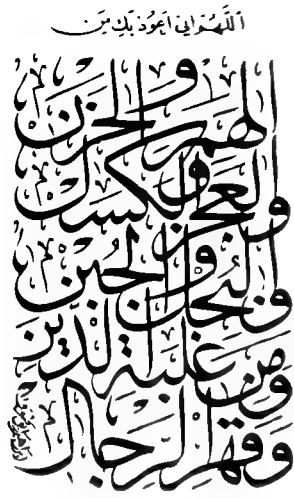 اللهم إني أعوذ بك من
الهم والحزن
والعجز والكسل
والجبن والبخل
ومن غلبة الدين
وقهر الرجال